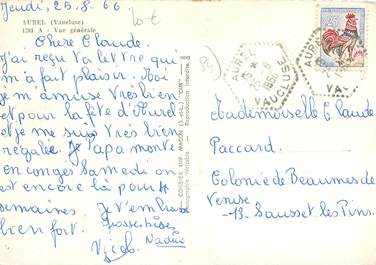 Jeudi, 25.8.66
10€
AUREL (Vaucluse)
1301 A - Vue générale
Chere Claude.
J'ai reçu ta lettre qui
m'a fait plaisir. Moi
je m'amuse très bien
et pour la fête d'Aurel
je me suis très bien
régalée. Papa monte
en congés Samedi on
est encore là pour
semaines. Je t'embrasse
bien fort. Grosses bises
Nadine
COMBIER IMP. MACON (S.-et-L.) "CIM"
Reproduction Interdite
AUREL
25 -8
1966
VAUCLUSE
AUREL
VAU
25
Mademoiselle Claude
Paccard
Colonie de Beaumes de
Venise
-13- Sausset les Pins.